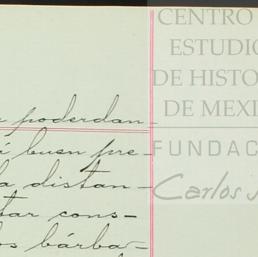 CENTRO
ESTUDIO
DE HISTO
DE MEXI
FUNDAC
Carlos
poderdan-
buen pre-
a distan-
tar cons-
os bárba-